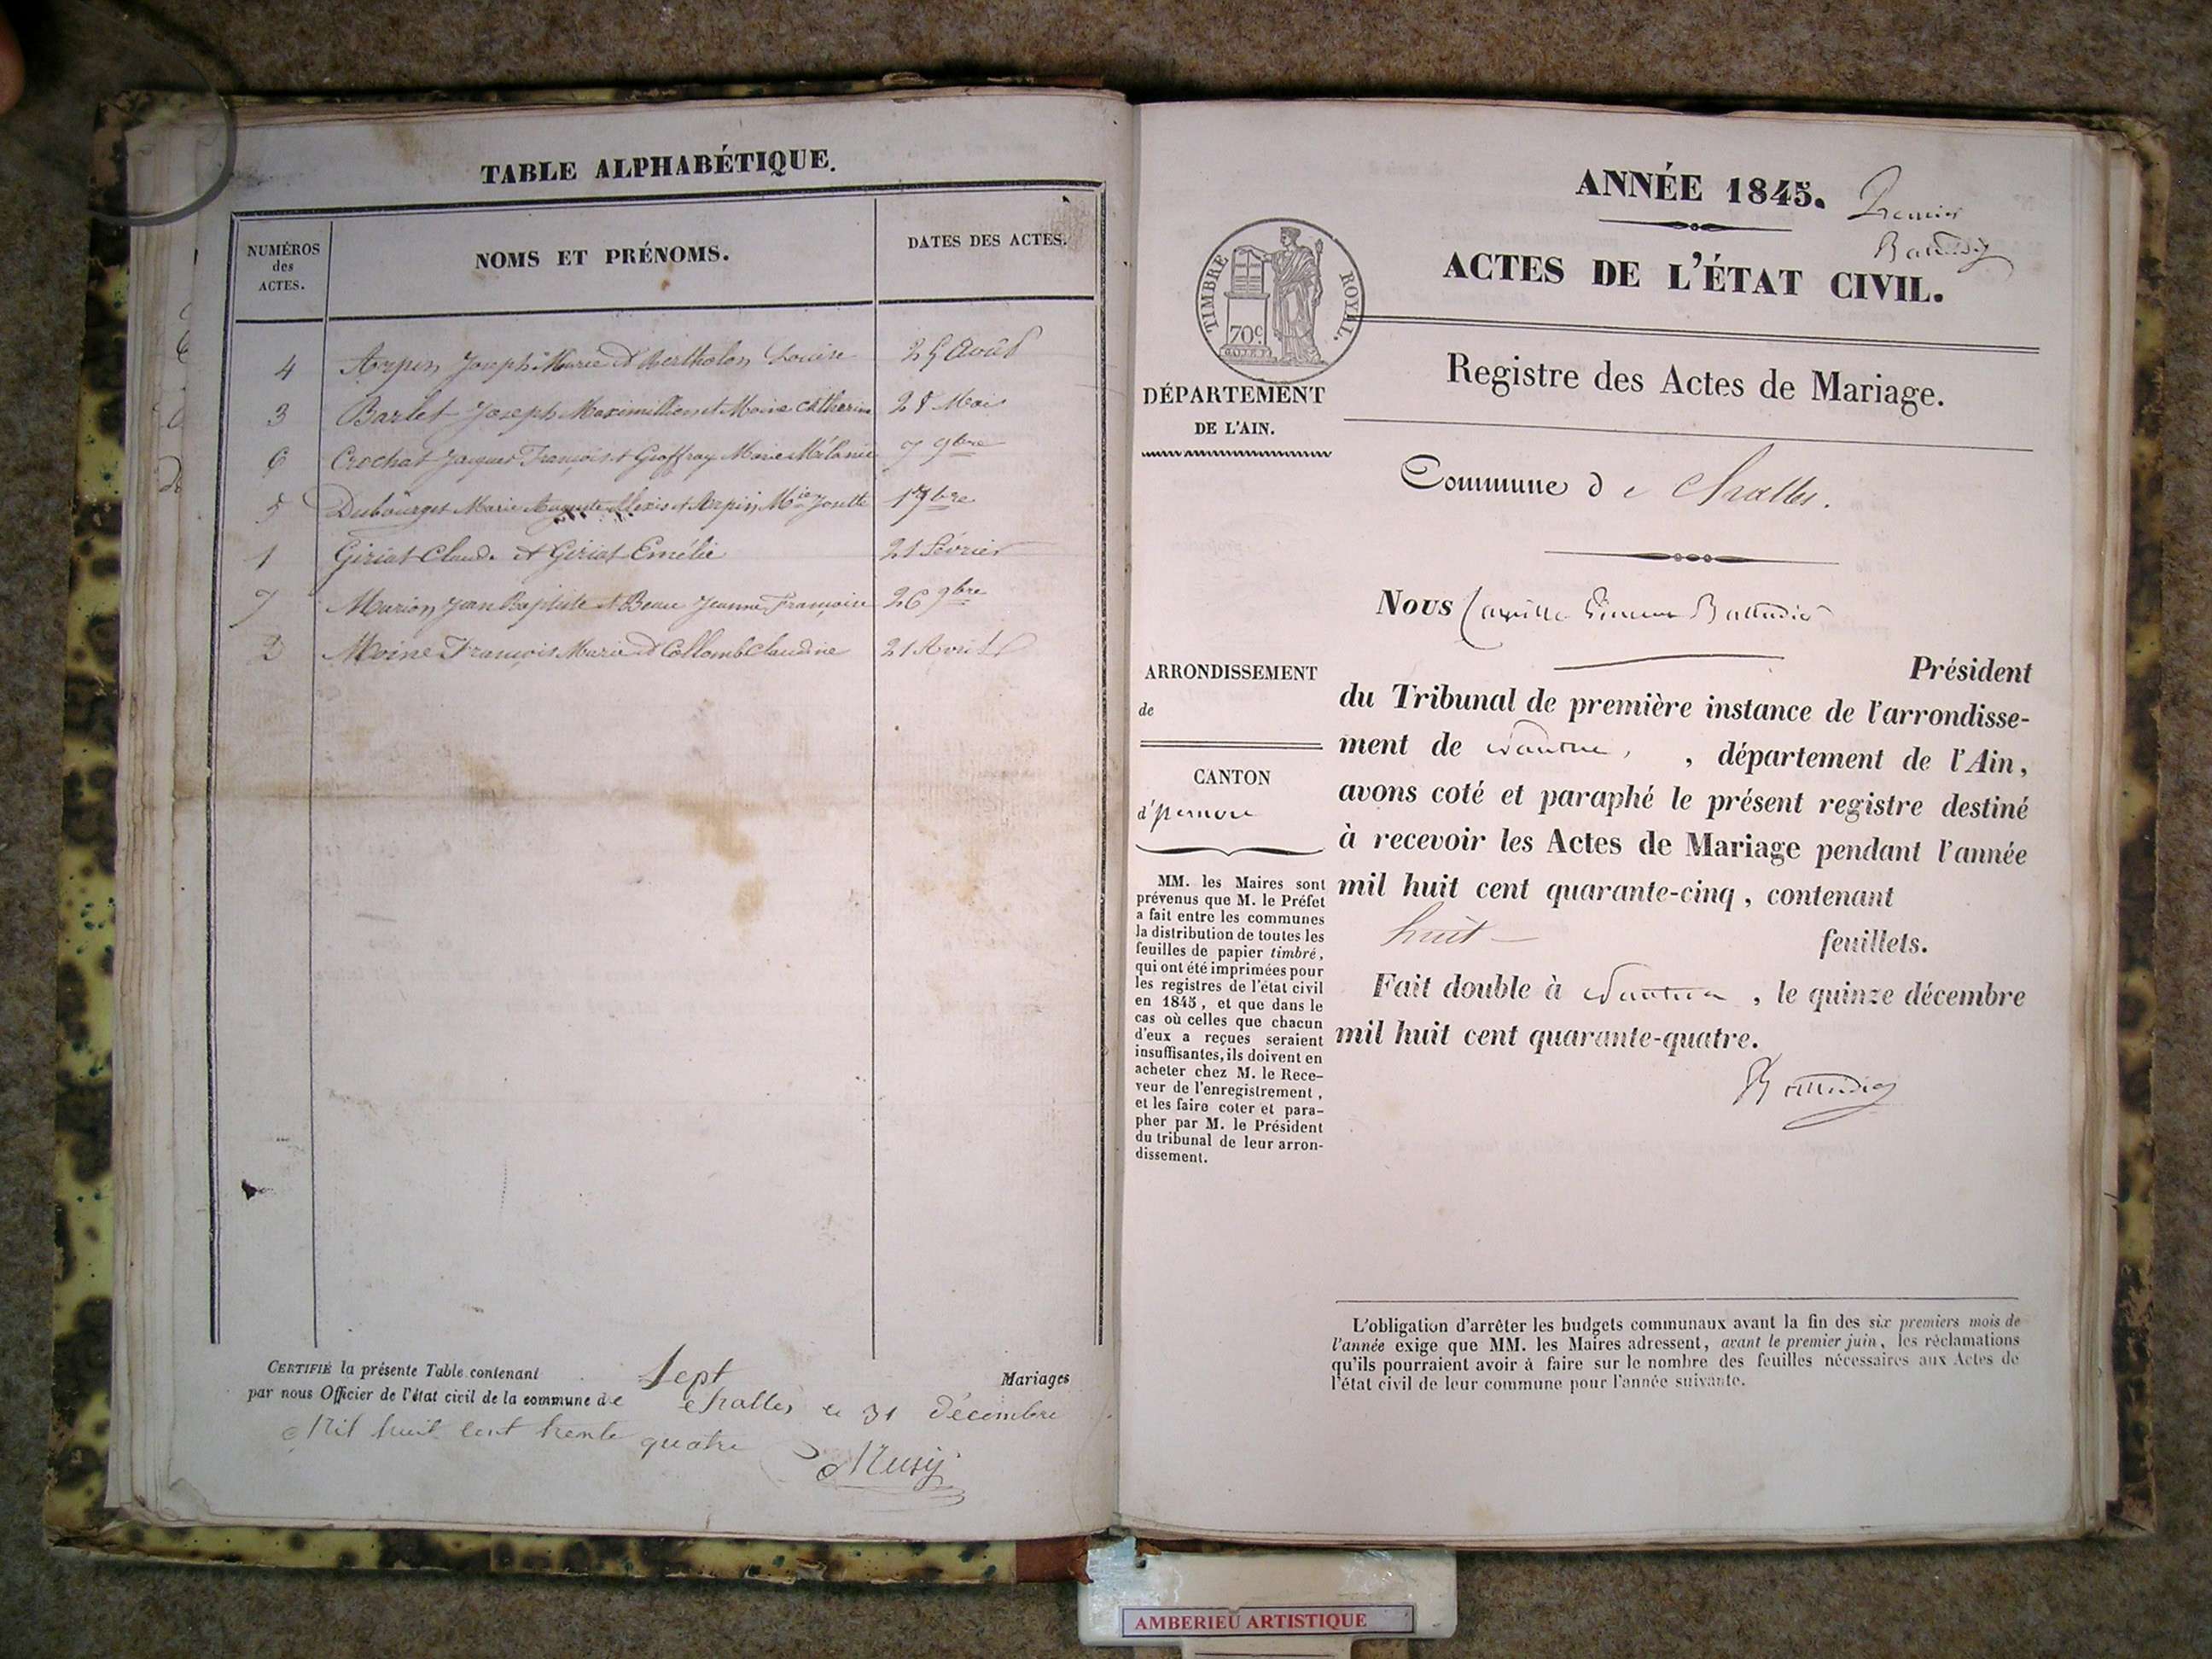 TABLE ALPHABÉTIQUE.
NUMÉROS des ACTES. NOMS ET PRÉNOMS. DATES DES ACTES.
4 Arpin Joseph Marie et Bertholon Louise 25 Août
3 Barlet Joseph Maximillien et Moine Catherine 28 Mai
6 Crochat Jacques François et Groffray Marie Mélanie 7 9bre
5 Dubourget Marie Auguste Alexis et Arpin Mie Josette 1 7bre
1 Giriat Claude et Giriat Emélie 21 Février
7 Marion Jean Baptiste et Beau Jeanne Françoise 26 9bre
2 Moine François Marie et Collomb Claudine 21 Avril
CERTIFIÉ la présente Table contenant Sept Mariages
par nous Officier de l'état civil de la commune de Challes le 31 décembre
Mil huit cent trente quatre
Musy
ANNÉE 1845. Premier
ACTES DE L'ÉTAT CIVIL.
TIMBRE ROYAL.
70c
Registre des Actes de Mariage.
DÉPARTEMENT
DE L'AIN.
Commune de Challes.
Nous Camille
Président
du Tribunal de première instance de l'arrondisse-
ment de Nantua, , département de l'Ain,
avons coté et paraphé le présent registre destiné
à recevoir les Actes de Mariage pendant l'année
mil huit cent quarante-cinq, contenant
huit feuillets.
Fait double à Nantua, le quinze décembre
mil huit cent quarante-quatre.
ARRONDISSEMENT
de
CANTON
d'
MM. les Maires sont
prévenus que M. le Préfet
a fait entre les communes
la distribution de toutes les
feuilles de papier timbré,
qui ont été imprimées pour
les registres de l'état civil
en 1845, et que dans le
cas où celles que chacun
d'eux a reçues seraient
insuffisantes, ils doivent en
acheter chez M. le Rece-
veur de l'enregistrement,
et les faire coter et para-
pher par M. le Président
du tribunal de leur arron-
dissement.
L'obligation d'arrêter les budgets communaux avant la fin des six premiers mois de
l'année exige que MM. les Maires adressent, avant le premier juin, les réclamations
qu'ils pourraient avoir à faire sur le nombre des feuilles nécessaires aux Actes de
l'état civil de leur commune pour l'année suivante.
AMBERIEU ARTISTIQUE